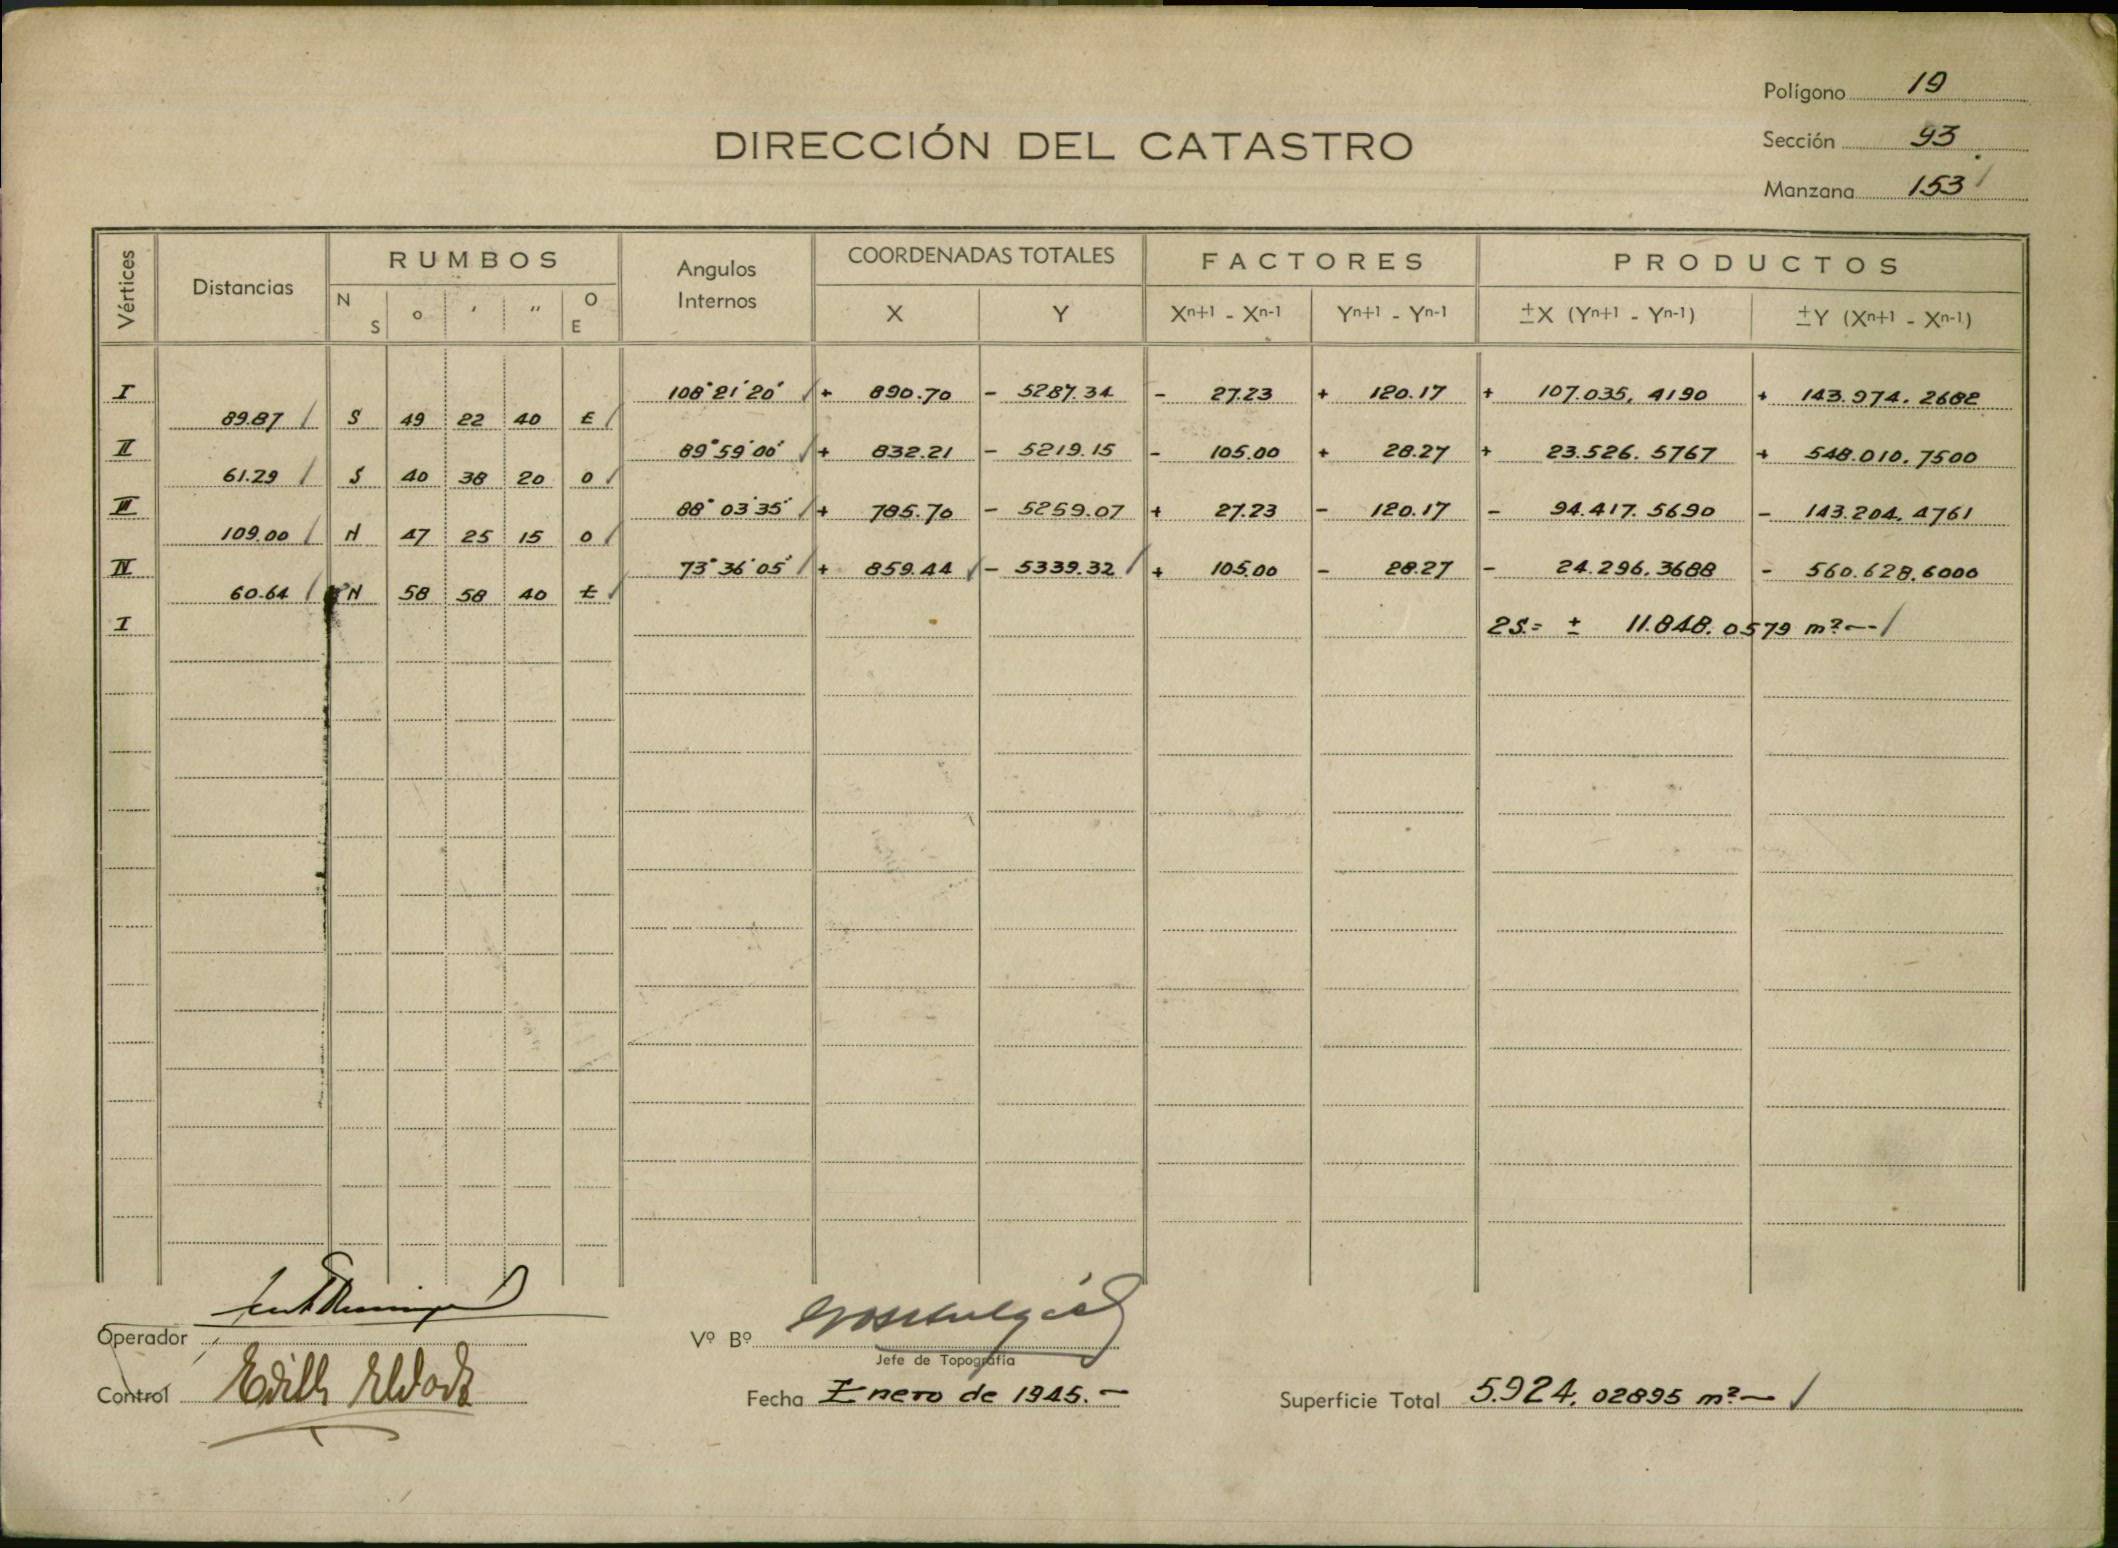 Polígono 19
Sección 93
Manzana 153
DIRECCIÓN DEL CATASTRO
Vértices Distancias RUMBOS Angulos Internos COORDENADAS TOTALES FACTORES PRODUCTOS
N S o ' " O E X Y Xn+1 - Xn-1 Yn+1 - Yn-1 ±X (Yn+1 - Yn-1) ±Y (Xn+1 - Xn-1)
I 108°21'20" + 890.70 - 5287.34 - 27.23 + 120.17 + 107.035,4190 + 143.974.2682
89.87 S 49 22 40 E
II 89°59'00" + 832.21 - 5219.15 - 105.00 + 28.27 + 23.526.5767 + 548.010.7500
61.29 S 40 38 20 O
III 88°03'35" + 785.70 - 5259.07 + 27.23 - 120.17 - 94.417.5690 - 143.204.4761
109.00 N 47 25 15 O
IV 73°36'05" + 859.44 - 5339.32 + 105.00 - 28.27 - 24.296.3688 - 560.628,6000
60.64 N 58 58 40 E
I 2S.= ± 11.848.0579 m²
Operador
Control
Vº Bº
Jefe de Topografía
Fecha Enero de 1945.-
Superficie Total 5.924,02895 m²